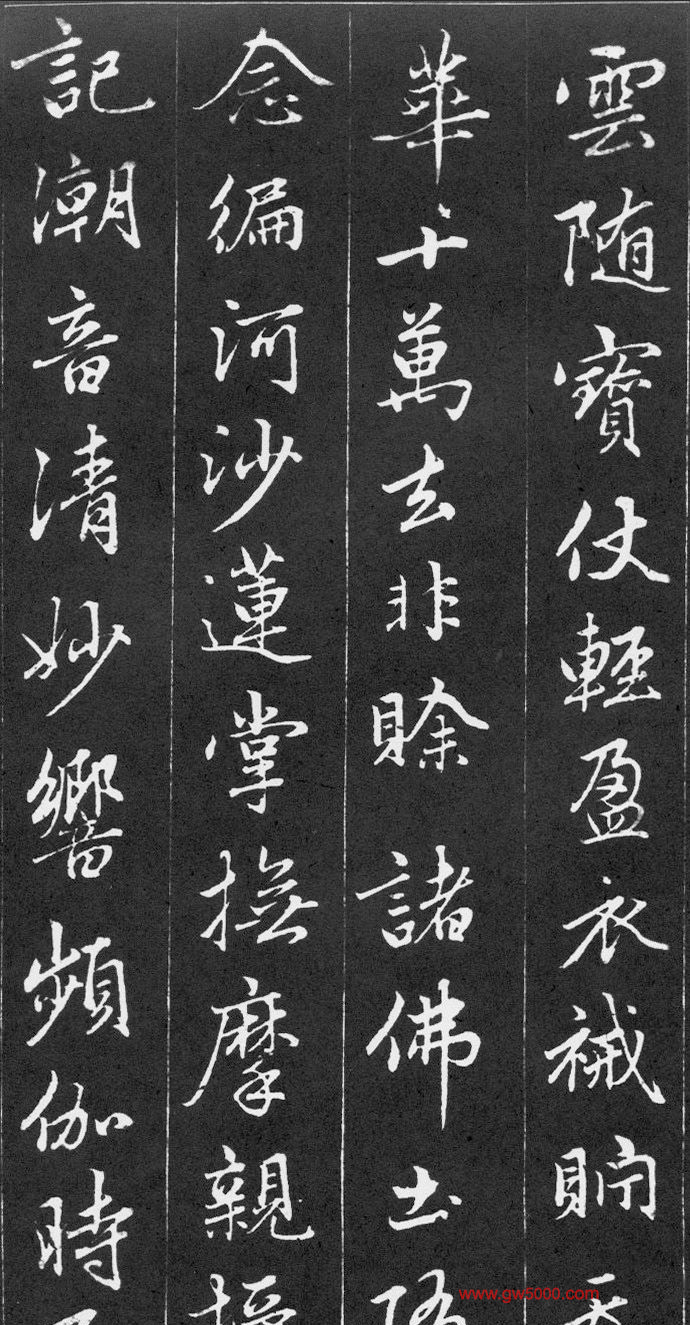 雲隨寶仗輕盈衣裓貯天
華十萬去非賒諸佛土隨
念徧河沙蓮掌撫摩親授
記潮音清妙響頻伽時
www.gw5000.com